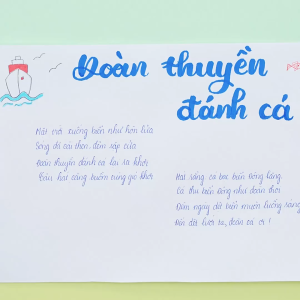 Đoàn thuyền
đánh cá
Mặt trời xuống biển như hòn lửa
Sóng đã cài then, đêm sập cửa
Đoàn thuyền đánh cá lại ra khơi
Câu hát căng buồm cùng gió khơi
Hát rằng cá bạc biển Đông lặng
Cá thu biển Đông như đoàn thoi
Đêm ngày dệt biển muôn luồng sáng
Đến dệt lưới ta, đoàn cá ơi!